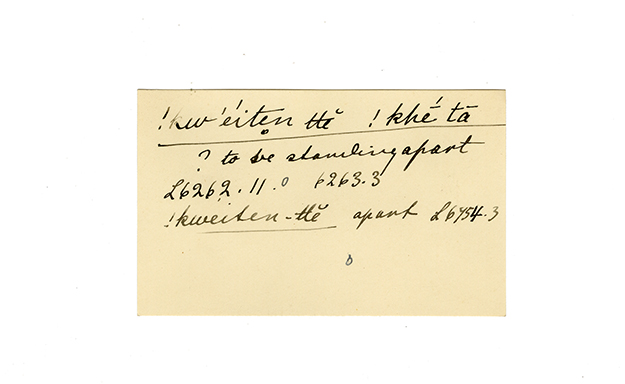 !kw'éiten ttĕ !khé tā
? to be standing apart
L6262.11.0 6263.3
!kweiten-ttĕ apart L6454.3